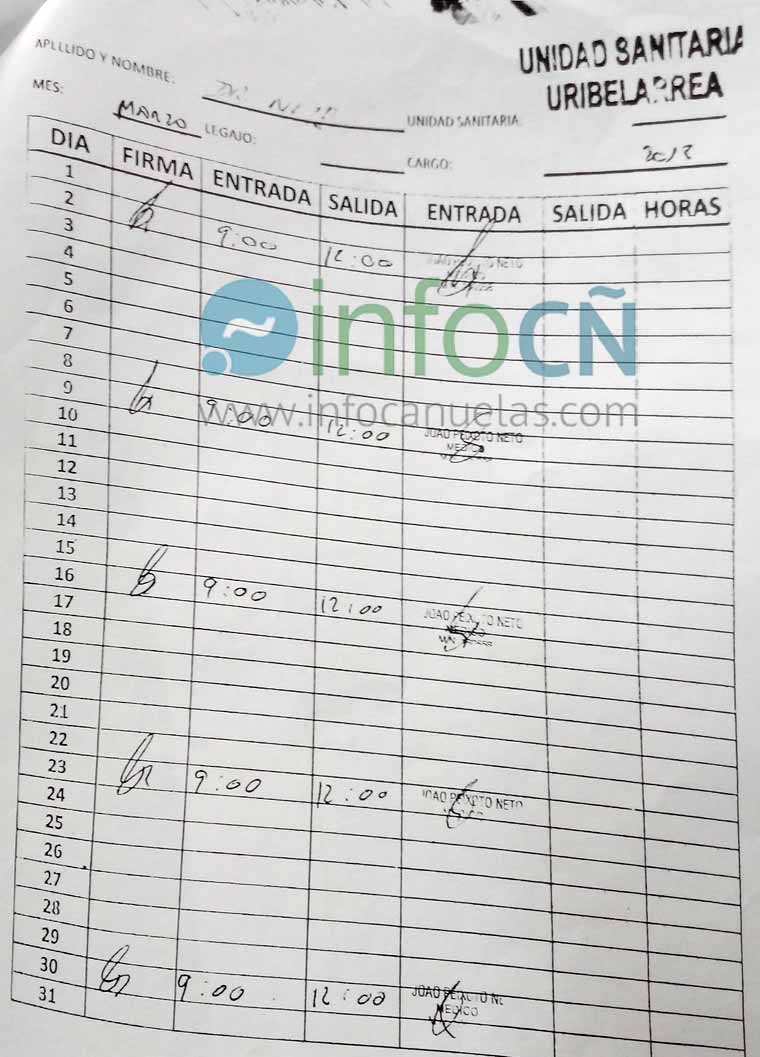 UNIDAD SANITARIA
URIBELARREA
APELLIDO Y NOMBRE: Dr. Neto
UNIDAD SANITARIA:
MES: MARZO LEGAJO:
CARGO:
DIA FIRMA ENTRADA SALIDA ENTRADA SALIDA HORAS
1
2
3 9:00 12:00 NETO
4
5
6
7
8
9
10 9:00 12:00 JOAO PEIXOTO NETO
MEDICO
11
12
13
14
15
16
17 9:00 12:00 JOAO PEIXOTO NETO
MEDICO
18
19
20
21
22
23
24 9:00 12:00 JOAO PEIXOTO NETO
25
26
27
28
29
30
31 9:00 12:00 JOAO PEIXOTO NE
MEDICO
infoCÑ
www.infocanuelas.com